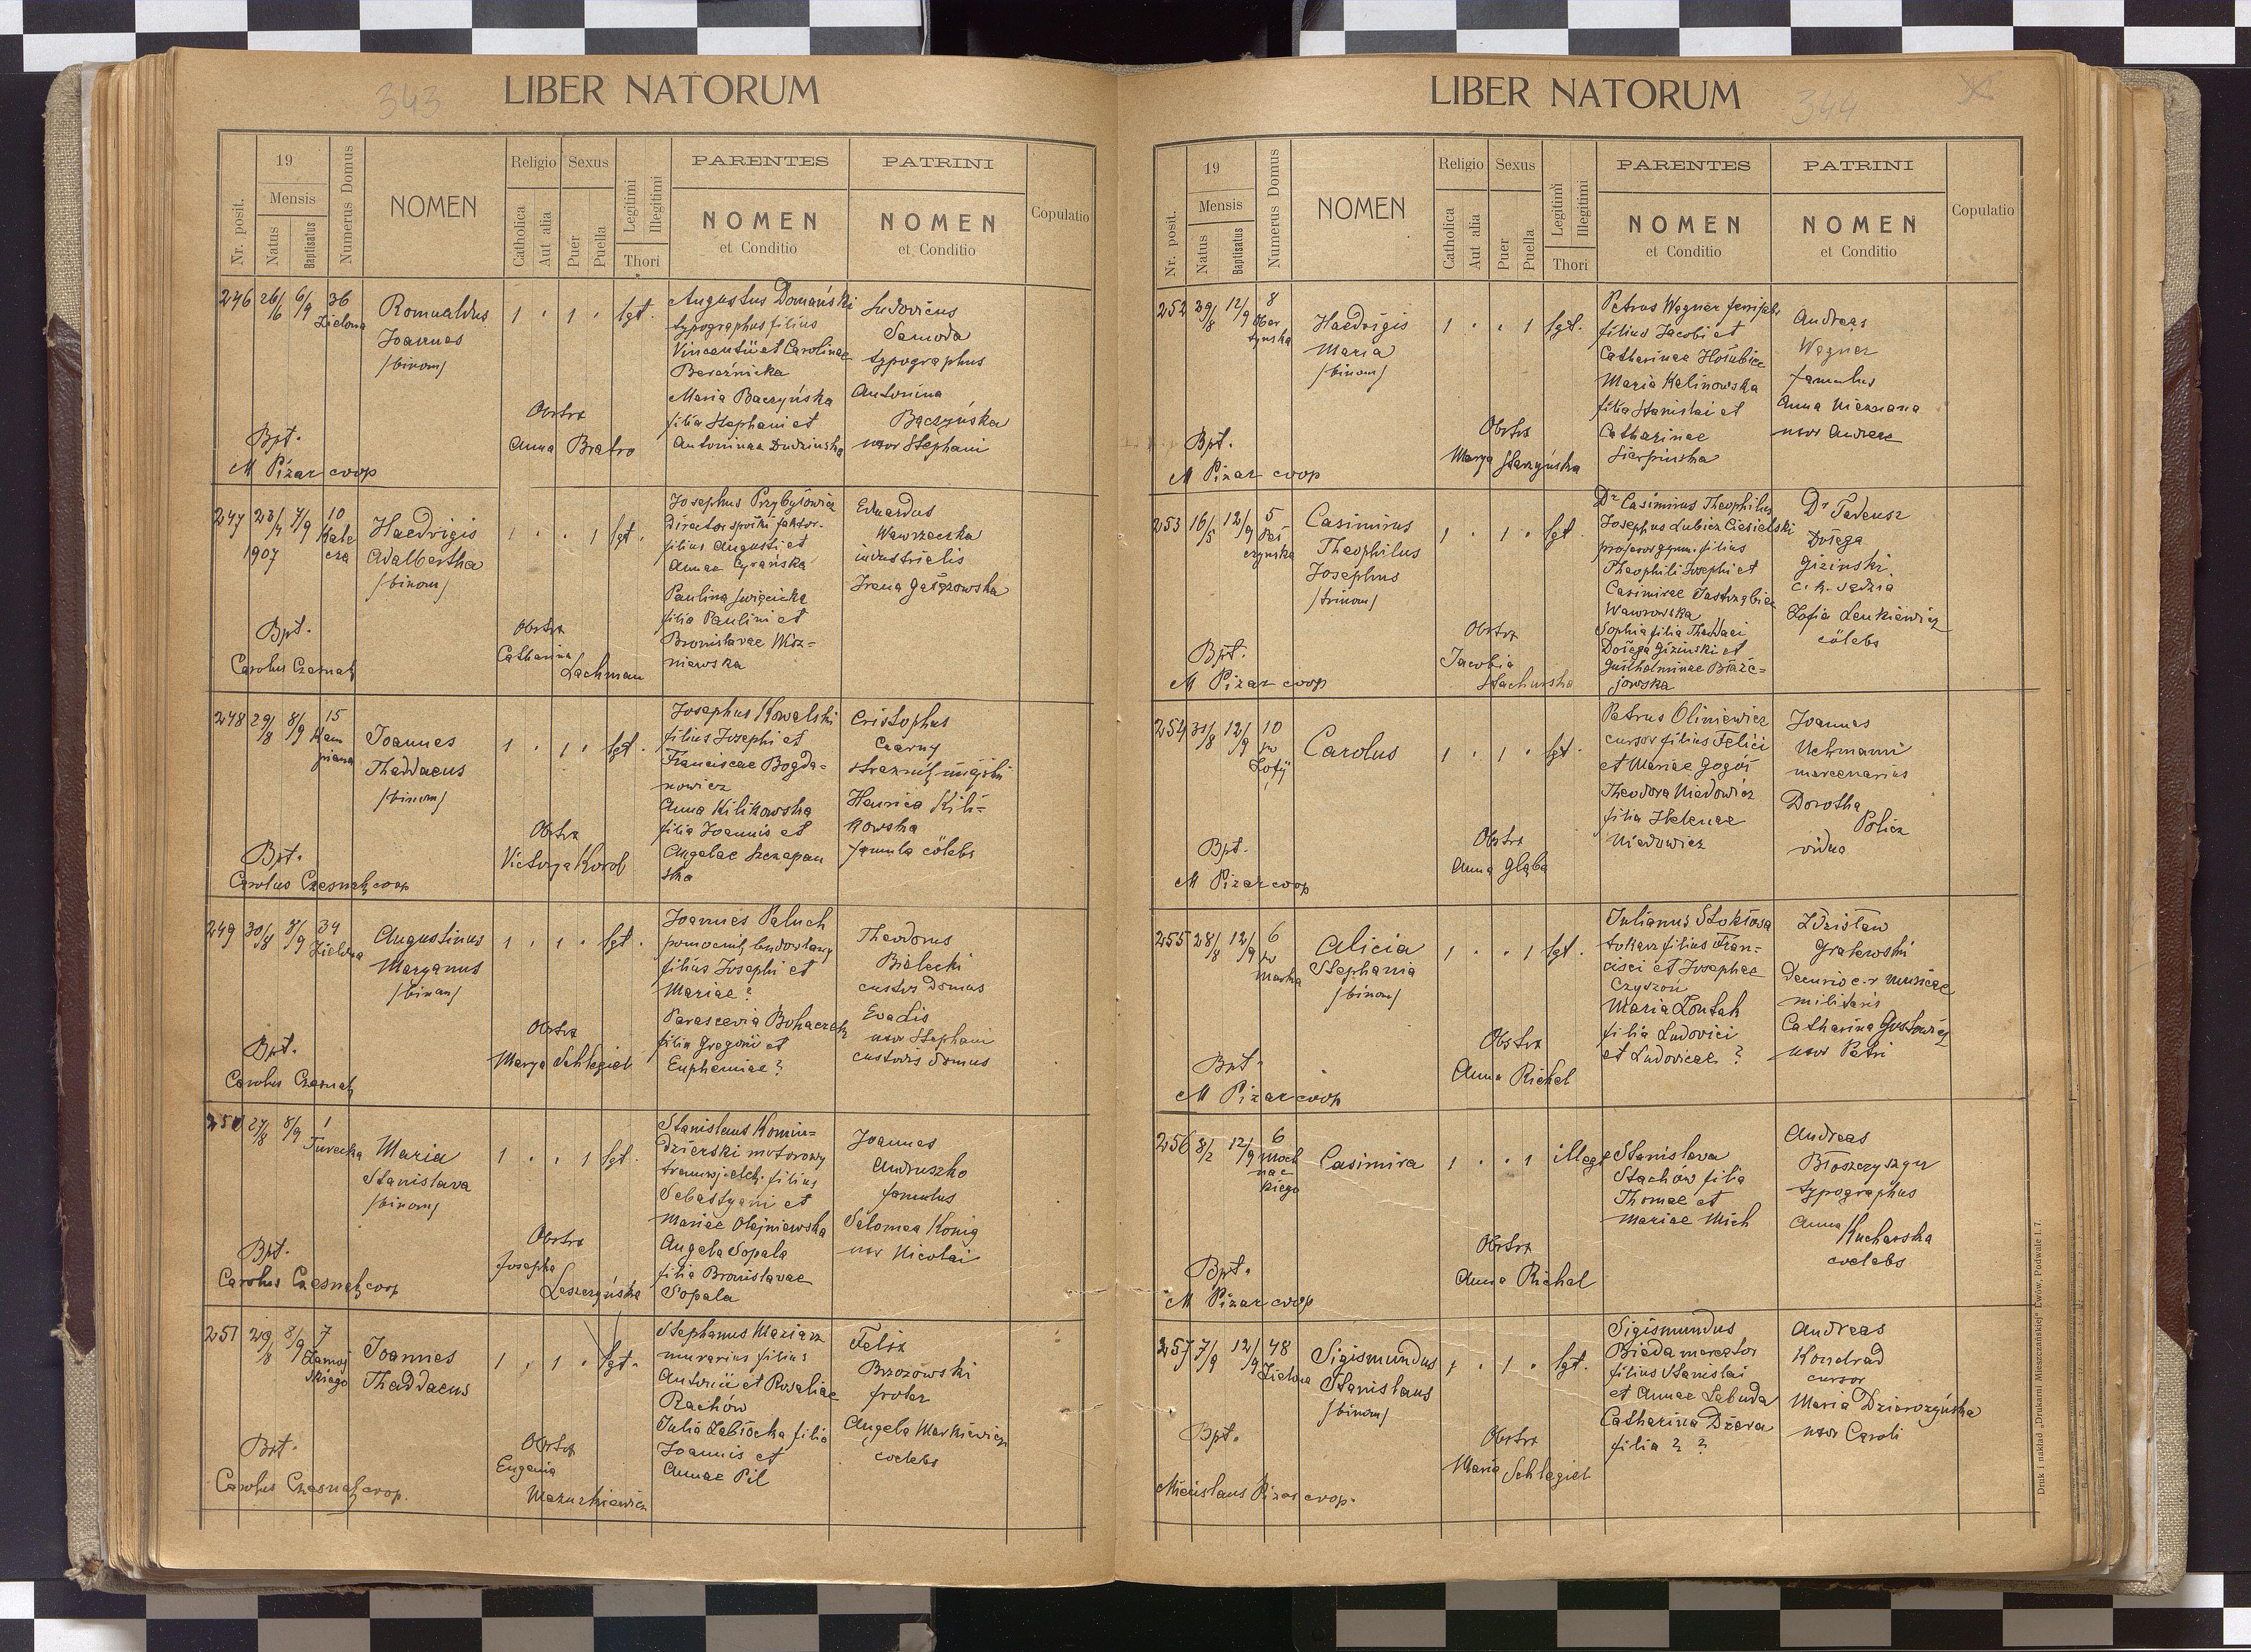 343
LIBER NATORUM
Nr. posit.
19
Mensis
Natus
Baptisatus
Numerus Domus
NOMEN
Religio
Catholica
Aut alia
Sexus
Puer
Puella
Legitimi
Illegitimi
Thori
PARENTES
NOMEN
et Conditio
PATRINI
NOMEN
et Conditio
Copulatio
246 26/6 6/9 36
Zielona
Romualdus
Joannes
/binom/
1 . 1 . lgt.
Augustus Domański
typographus filius
Vincentii et Carolinae
Bereźnicka
Maria Baczyńska
filia Stephani et
Antoninae Dudzinska
Ludovicus
Samoda
typographus
Antonina
Bączyńska
uxor Stephani
Obstrx
Anna Bratro
Bpt.
M Pizar coop
247 23/4 7/9 10
1907
Kale
cza
Haedvigis
Adalbertha
/binom/
1 . . 1 lgt.
Josephus Przybyłowicz
director spółki faktor.
filius Augusti et
Annae Cyrańska
Paulina Święcicka
filia Paulini et
Bronislavae Wisz-
niewska
Eduardus
Wawrzecka
industrialis
Irena Gałęzowska
Obstrx
Catharina
Lachman
Bpt.
Carolus Czesnak
248 29/8 8/9 15
Kam
piana
Joannes
Thaddaeus
/binom/
1 . 1 . lgt.
Josephus Kowalski
filius Josephi et
Franciscae Bogda-
nowicz
Anna Kilikowska
filia Joannis et
Angelae Szczepan
ska
Cristophus
Czarny
strażnik miejski
Henrica Kili-
kowska
famula cölebs
Obstrx
Victorya Korol
Bpt.
Carolus Czesnak coop
249 30/8 8/9 34
Zielona
Augustinus
Maryanus
/binom/
1 . 1 . lgt.
Joannes Paluch
pomocnik budowlany
filius Josephi et
Mariae ?
Parascevia Bohaczek
filia Gregorii et
Euphemiae ?
Theodorus
Bielecki
custos domus
Eva Lis
uxor Stephani
custodis domus
Obstrx
Marya Schlegiel
Bpt.
Carolus Czesnak
250 27/8 8/9 1
Turecka
Maria
Stanislava
/binom/
1 . . 1 lgt.
Stanislaus Komin-
dzierski motorowy
tramwj. elek. filius
Sebastyani et
Mariae Olejniewska
Angela Sopala
filia Bronislavae
Sopala
Joannes
Andruszko
famulus
Salomea König
uxor Nicolai
Obstrx
Josepha
Leszczyńska
Bpt.
Carolus Czesnak coop
251 29/8 8/9 7
Zamoj
skiego
Joannes
Thaddaeus
1 . 1 . lgt.
Stephanus Mariasz
murarius filius
Antonii et Rosaliae
Rachów
Julia Zabłocka filia
Joannis et
Annae Pil
Felix
Brzozowski
frater
Angela Markiewicz
coelebs
Obstrx
Eugenia
Mazurkiewicz
Bpt.
Carolus Czesnak coop.
LIBER NATORUM
344
Nr. posit.
19
Mensis
Natus
Baptisatus
Numerus Domus
NOMEN
Religio
Catholica
Aut alia
Sexus
Puer
Puella
Legitimi
Illegitimi
Thori
PARENTES
NOMEN
et Conditio
PATRINI
NOMEN
et Conditio
Copulatio
252 29/8 12/9 8
Ober
tynska
Haedvigis
Maria
/binom/
1 . . 1 lgt.
Petrus Wagner
filius Jacobi et
Catharinae Hołubiec
Maria Kalinowska
filia Stanislai et
Catharinae
Sierpinska
Andreas
Wagner
famulus
Anna Nieznana
uxor Andreae
Obstrx
Marya Starzyńska
Bpt.
M Pizar coop
253 16/5 12/9 5
Peł
czynska
Casimirus
Theophilus
Josephus
/trinom/
1 . 1 . lgt.
Dr Casimirus Theophilus
Josephus Lubicz Ciesielski
profesor gymn. filius
Theophili Josephi et
Casimirae Jastrzębiec
Wawrowska
Sophia filia Thaddaei
Dołęga Gizinski et
Guilhelminae Błaże-
jowska
Dr Tadeusz
Dołęga
Gizinski
c. k. sędzia
Zofia Lenkiewicz
cölebs
Obstrx
Jacobia
Stachurska
Bpt.
M Pizar coop
254 31/8 12/9 10
św
Zofij
Carolus
1 . 1 . lgt.
Petrus Oliniewicz
cursor filius Felici
et Mariae Gogół
Theodora Niedowicz
filia Helenae
Niedowicz
Joannes
Uchmann
mercenarius
Dorotha
Policz
vidua
Obstrx
Anna Głąba
Bpt.
M Pizar coop
255 28/8 12/9 6
św
Marka
Alicia
Stephania
/binom/
1 . . 1 lgt.
Julianus Stokłosa
tokarz filius Fran-
cisci et Josephae
Czyżoń
Maria Zontak
filia Ludovici
et Ludovicae ?
Zdzisław
Grabowski
decurio c.r musicae
militaris
Catharina Gustowicz
uxor Petri
Obstrx
Anna Richel
Bpt.
M Pizar coop
256 8/2 12/9 6
Moch
nac
kiego
Casimira
1 . . 1 illegt
Stanislava
Stachów filia
Thomae et
Mariae Mich
Andreas
Błoszczyszyn
typographus
Anna Kucharska
coelebs
Obstrx
Anna Richel
Bpt.
M Pizar coop
257 7/9 12/9 48
Zielona
Sigismundus
Stanislaus
/binom/
1 . 1 . lgt.
Sigismundus
Biada mercator
filius Stanislai
et Annae Labuda
Catharina Dżera
filia ? ?
Andreas
Kondrad
cursor
Maria Dzierożyńska
uxor Caroli
Obstrx
Maria Schlegiel
Bpt.
Mieislaus Pizar coop.
Druk i nakład „Drukarni Mieszczańskiej" Lwów, Podwale l. 7.